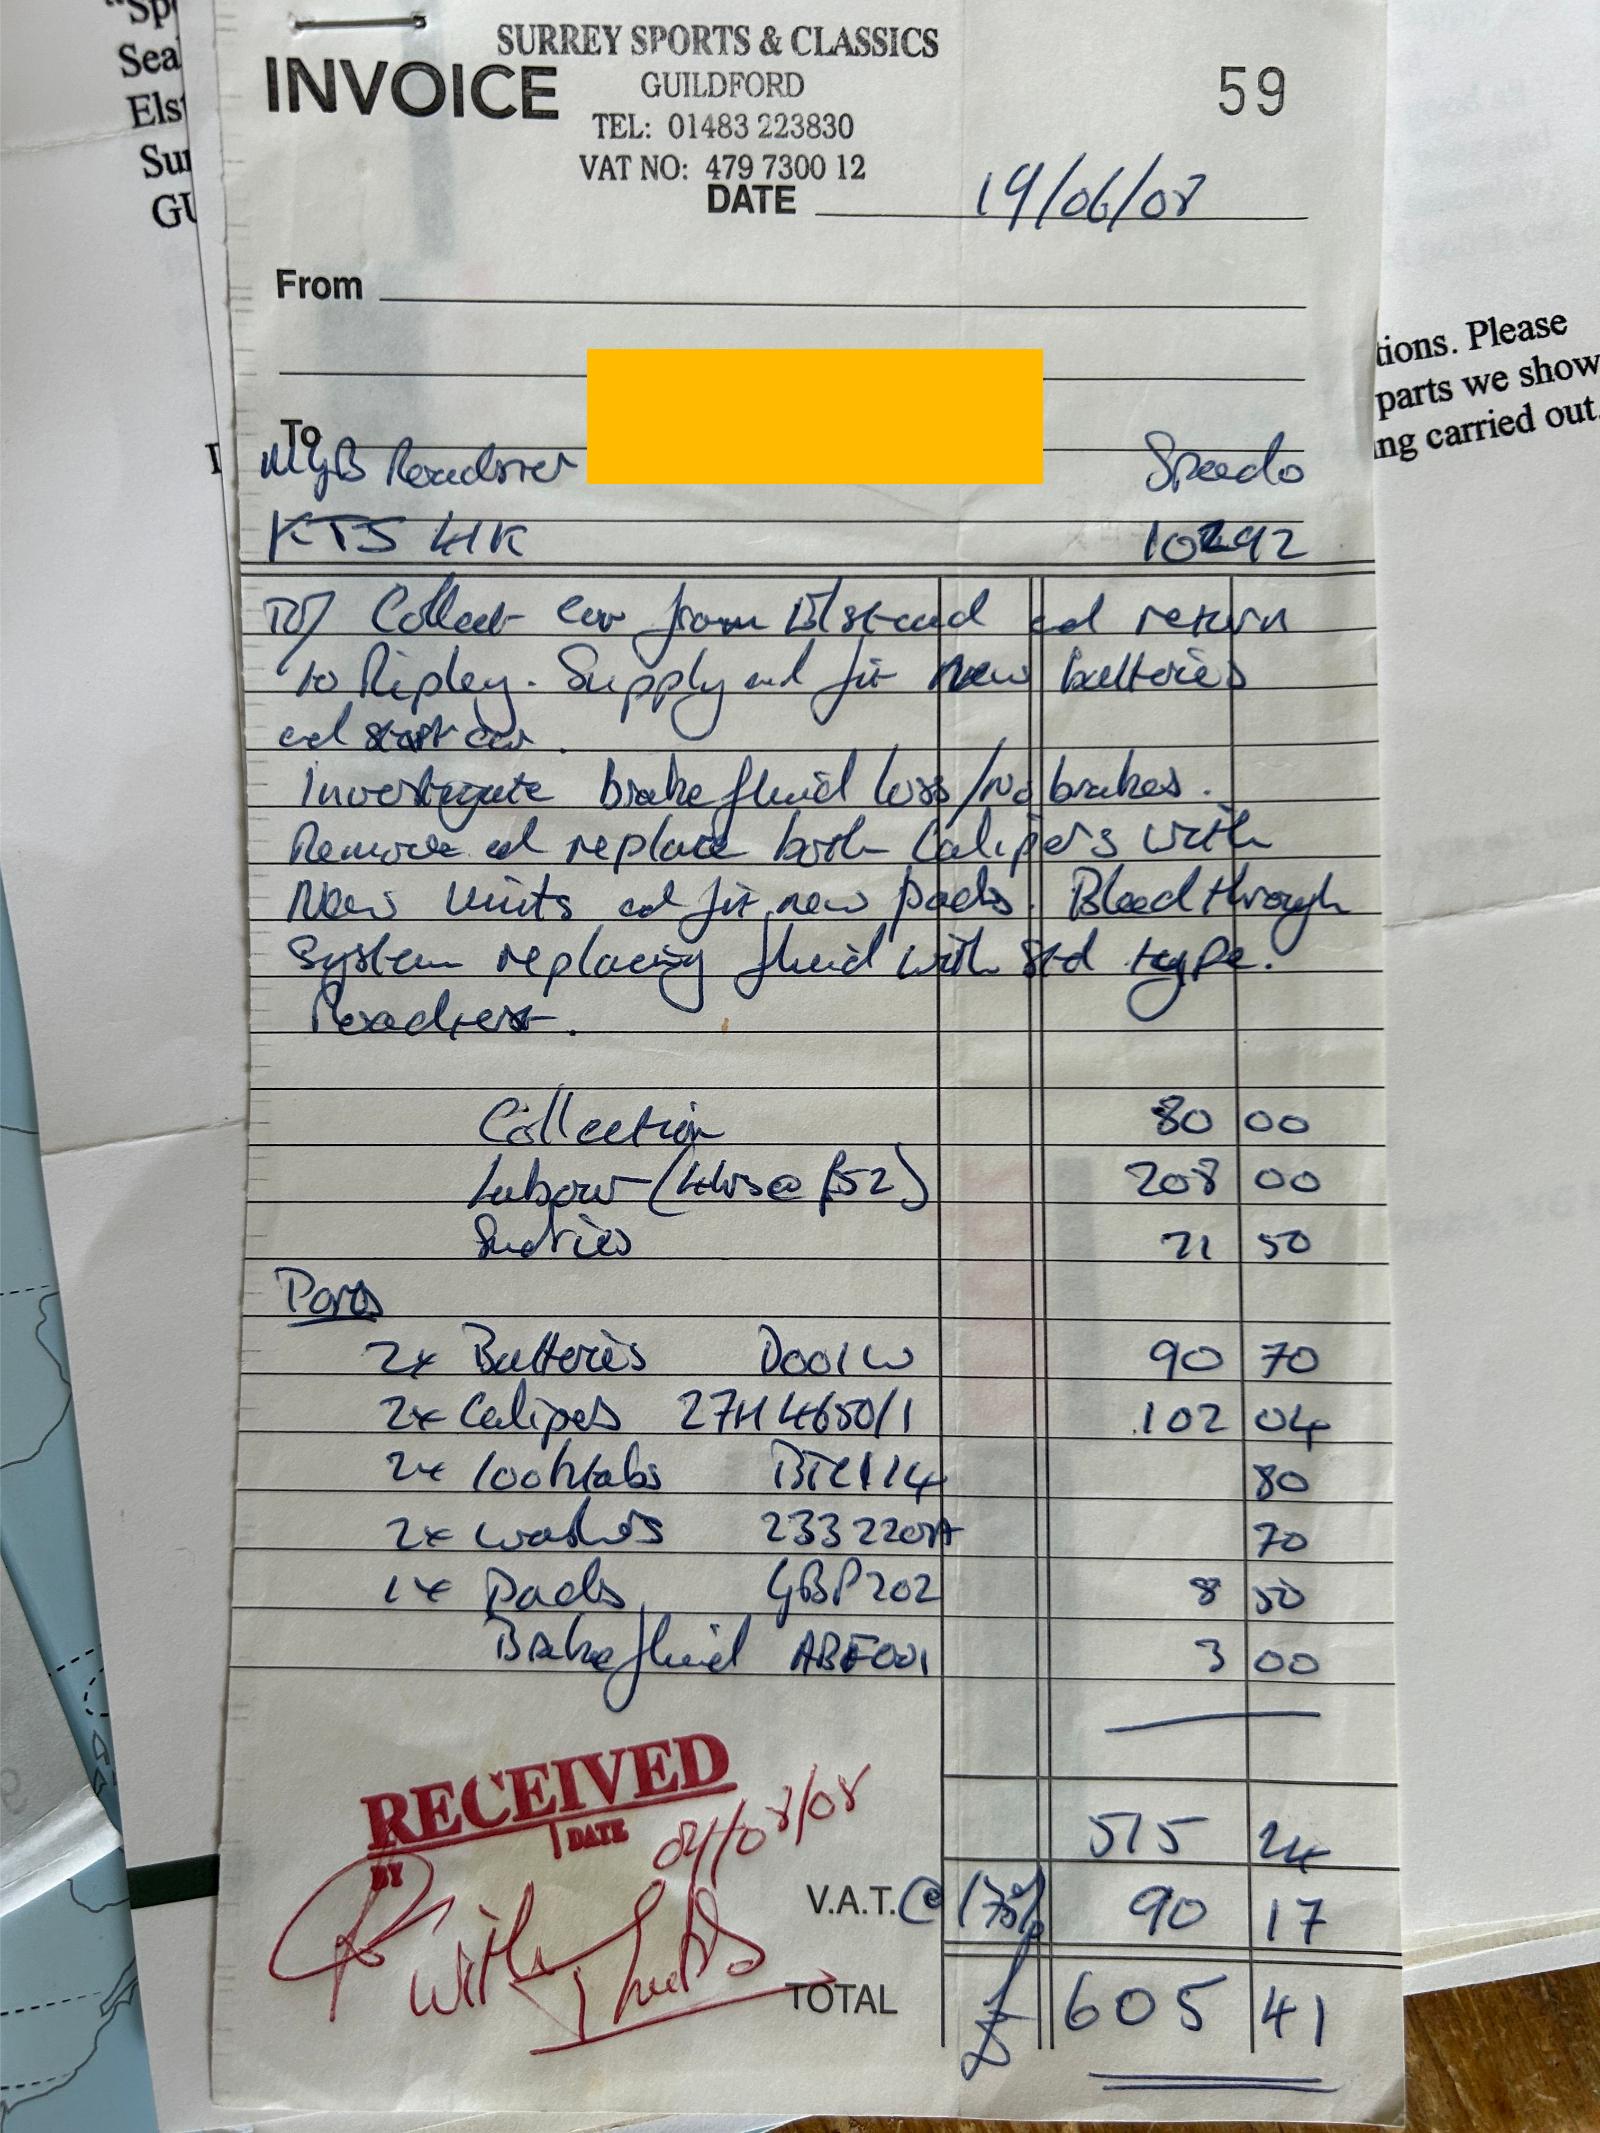 "Sp
Sea
Els
Sur
GU
SURREY SPORTS & CLASSICS
INVOICE
GUILDFORD
59
TEL: 01483 223830
VAT NO: 479 7300 12
DATE 19/06/08
From
To
MGB Roadster Speedo
KTJ 41K 10292
To/ Collect car from Elstead and return
to Ripley. Supply and fit new batteries
and start car.
Investigate brake fluid loss/no brakes.
Remove and replace both calipers with
new units and fit new pads. Bleed through
system replacing fluid with std type.
Roadtest.
Collection 80 00
Labour (4hrs @ £52) 208 00
Sundries 21 50
Parts
2x Batteries D001W 90 70
2x Calipers 27H4650/1 102 04
2x locktabs BTC114 80
2x washers 233220A 70
1x Pads GBP202 8 50
Brake fluid ABF001 3 00
515 24
V.A.T. @ 17½% 90 17
TOTAL £ 605 41
RECEIVED
DATE 04/08/08
BY
With Thanks
tions. Please
parts we show
ng carried out.